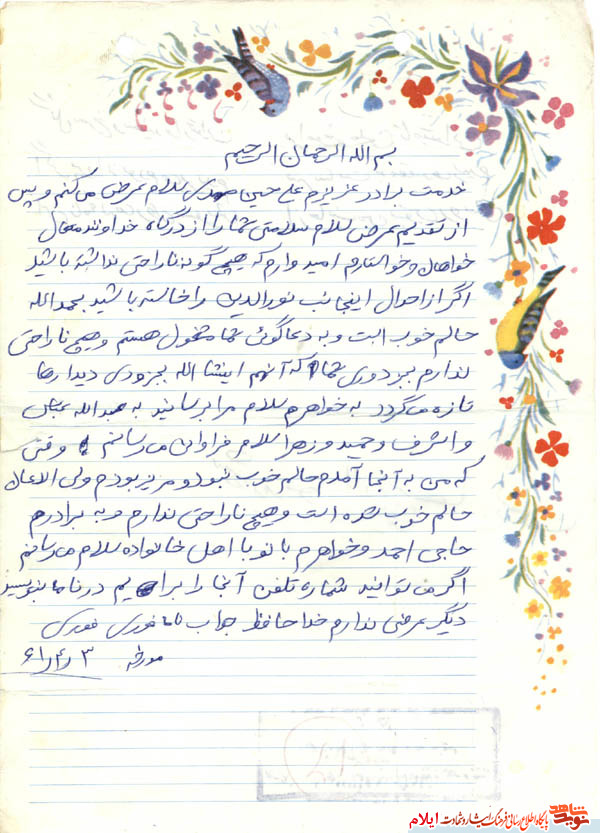 بسم الله الرحمان الرحیم
خدمت برادر عزیزم علی حسین صیدی سلام عرض می کنم و پس
از تقدیم عرض سلام سلامتی شما را از درگاه خداوند متعال
خواهان و خواستارم امیدوارم که هیچ گونه ناراحتی نداشته باشید
اگر از احوال اینجانب نورالدین را خاسته باشید بحمدالله
حالم خوب است و به دعاگوئی شما مشغول هستم و هیچ ناراحتی
ندارم بجز دوری شما که آنهم اینشا الله بزودی دیدارها
تازه می گردد به خواهرم سلام مرا برسانید به عبدالله عباس
و اشرف و حمید و زهرا سلام فراوان می رسانم وقتی
که من به آنجا آمدم حالم خوب نبود و مریز بودم ولی الاعان
حالم خوب شده است و هیچ ناراحتی ندارم و به برادرم
حاجی احمد و خواهرم بانو با اهل خانواده سلام می رسانم
اگر می توانید شماره تلفن آنجا را برایم در نامه بنویسید
دیگر عرضی ندارم خداحافظ جواب نامه فوری فوری
مورخه ۶۱/۴/۳
نوید شاهد
پایگاه اطلاع رسانی فرهنگ ایثار و شهادت ایلام